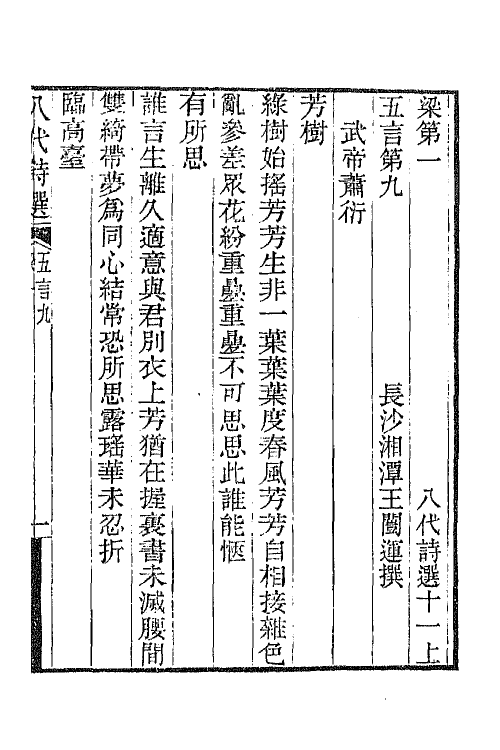 梁第一　八代詩選十一上
五言第九　長沙湘潭王闓運撰
武帝蕭衍
芳樹
綠樹始搖芳芳生非一葉葉葉度春風芳芳自相接雜色
亂參差眾花紛重疊重疊不可思思此誰能愜
有所思
誰言生離久適意與君別衣上芳猶在握裏書未滅腰間
雙綺帶夢爲同心結常恐所思露瑤華未忍折
臨高臺
八代詩選　五言九　一